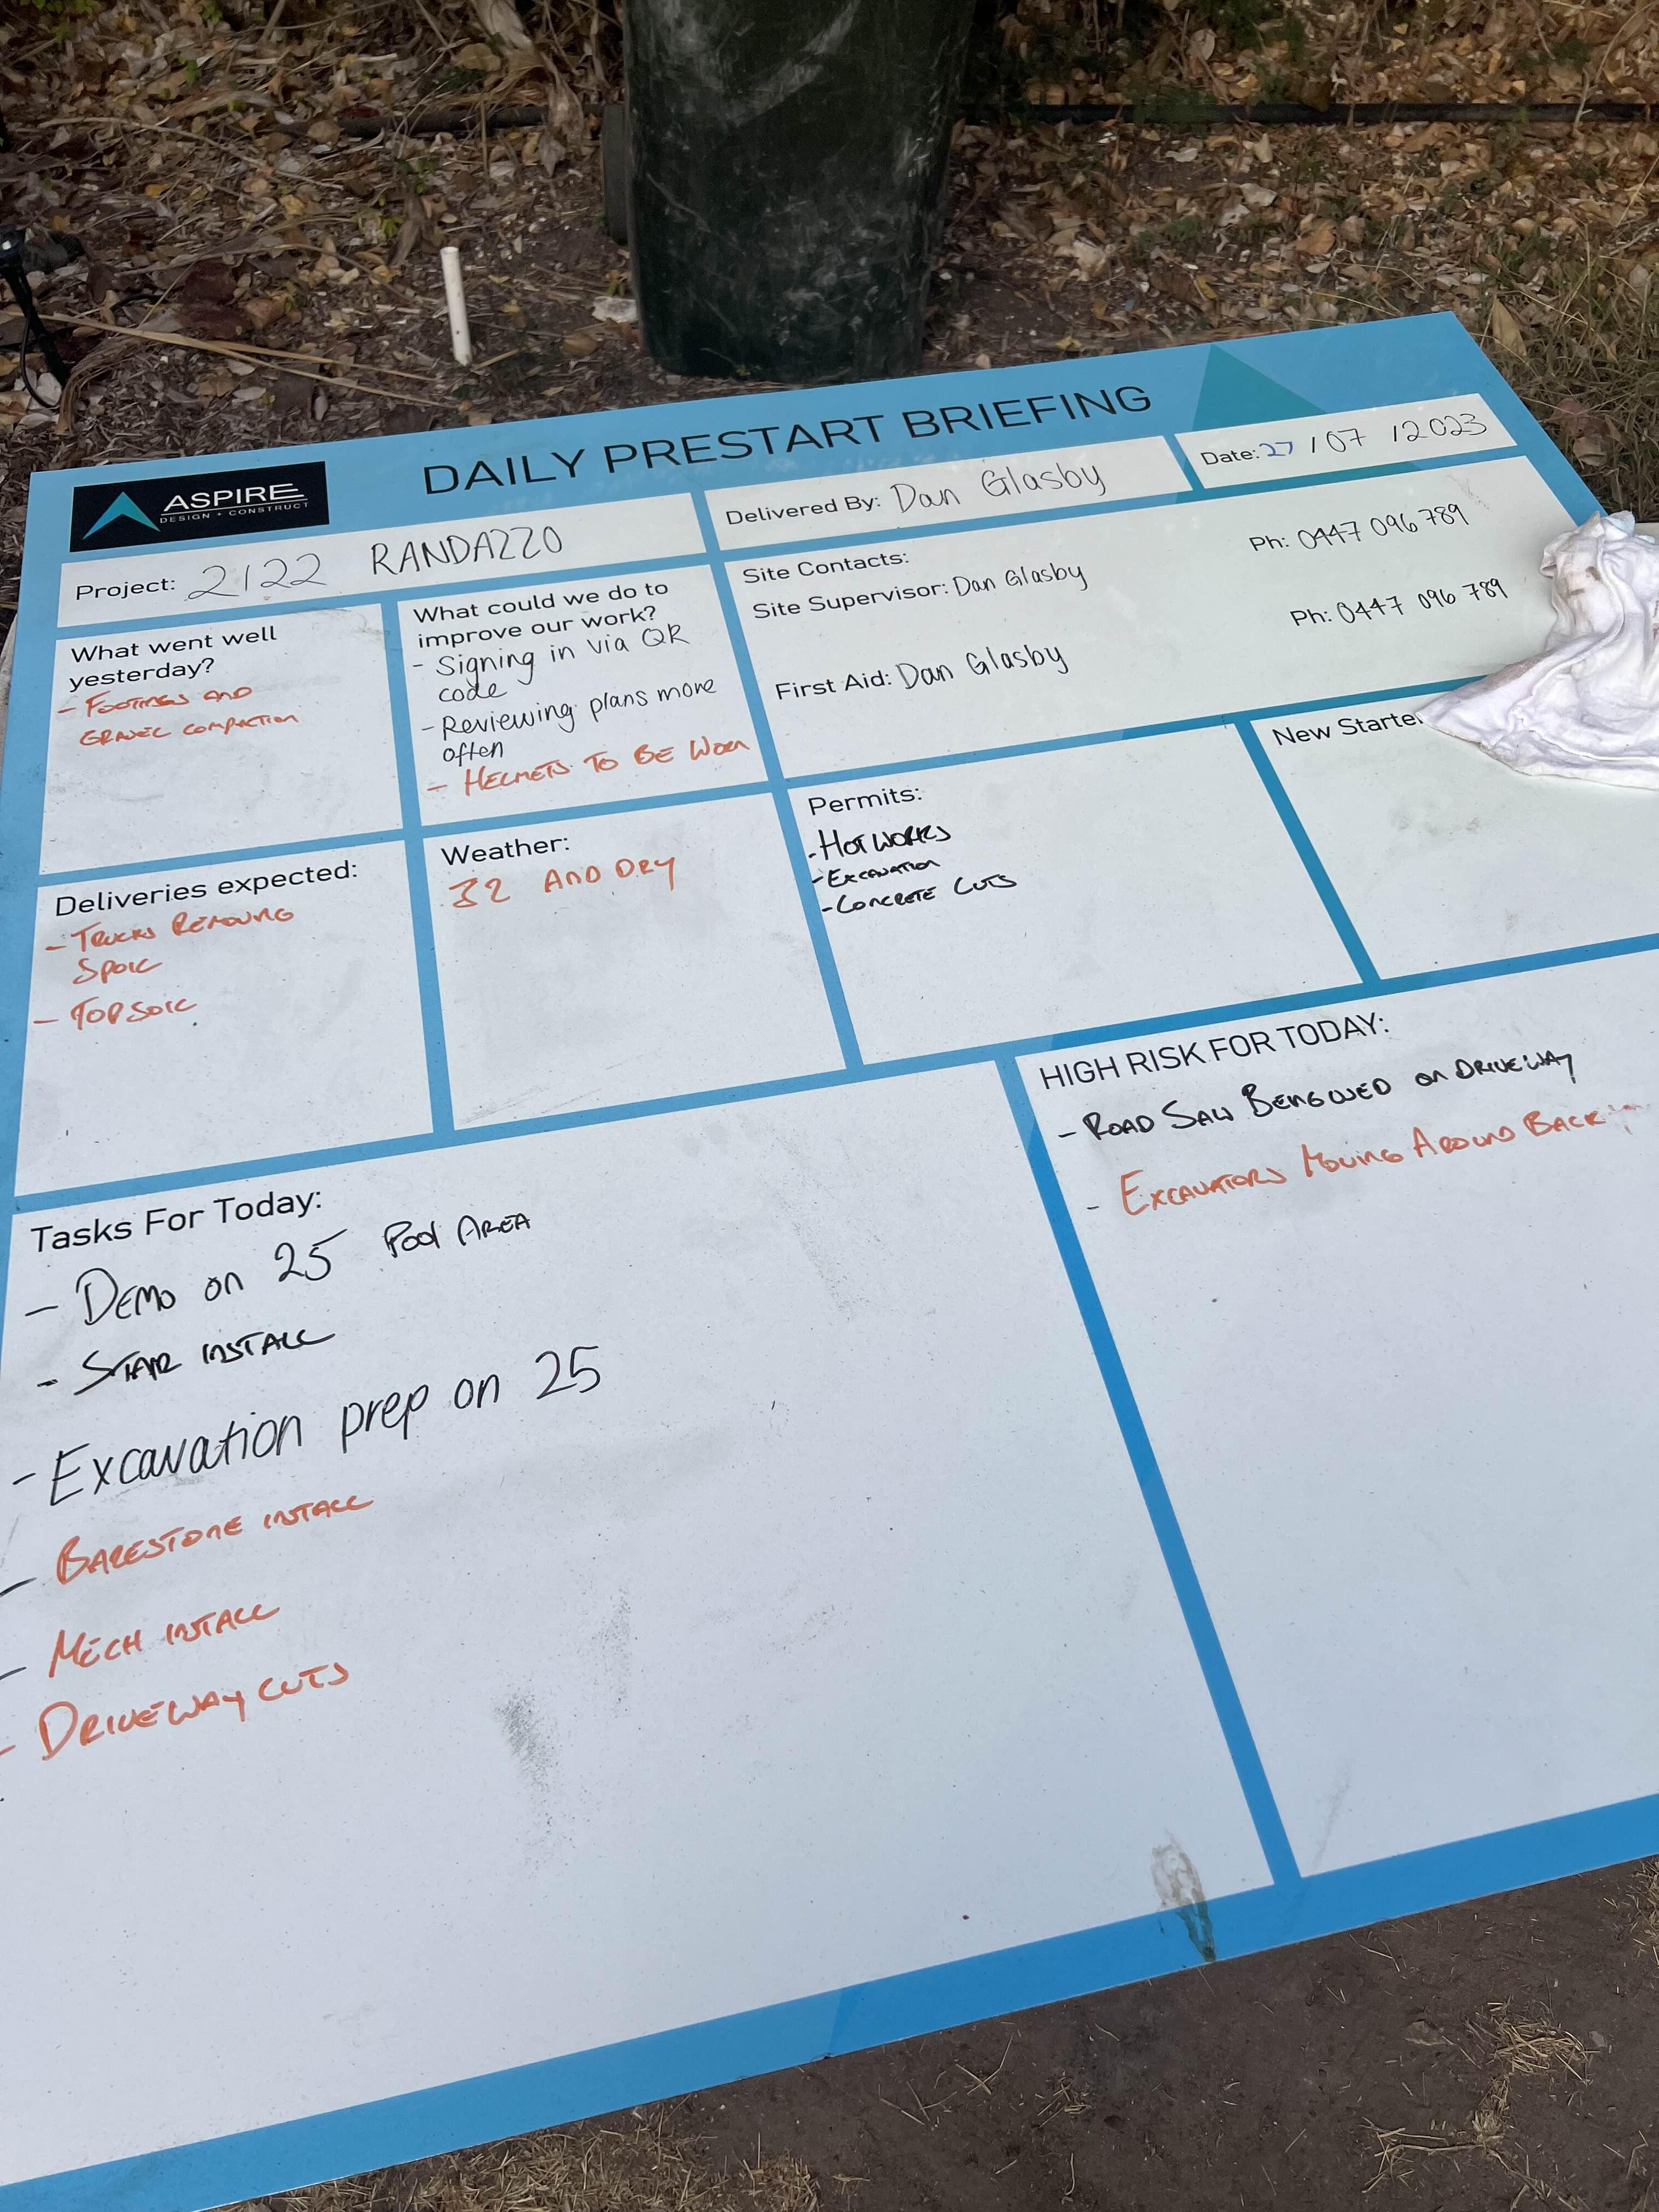 DAILY PRESTART BRIEFING
ASPIRE
DESIGN + CONSTRUCT
Project: 2122 RANDAZZO
Delivered By: Dan Glasby
Date: 27 / 07 / 2023
What went well
yesterday?
- FOOTINGS AND
GRAVEL COMPACTION
What could we do to
improve our work?
- Signing in via QR
code
- Reviewing plans more
often
- HELMETS TO BE WORN
Site Contacts:
Site Supervisor: Dan Glasby Ph: 0447 096 789
First Aid: Dan Glasby Ph: 0447 096 789
Deliveries expected:
- TRUCKS REMOVING
SPOIL
- TOPSOIL
Weather:
32 AND DRY
Permits:
- HOT WORKS
- EXCAVATION
- CONCRETE CUTS
New Starter
Tasks For Today:
- DEMO ON 25 POOL AREA
- STAIR INSTALL
- Excavation prep on 25
- BARESTONE INSTALL
- MECH INSTALL
- DRIVEWAY CUTS
HIGH RISK FOR TODAY:
- ROAD SAW BEING USED ON DRIVEWAY
- EXCAVATORS MOVING AROUND BACK